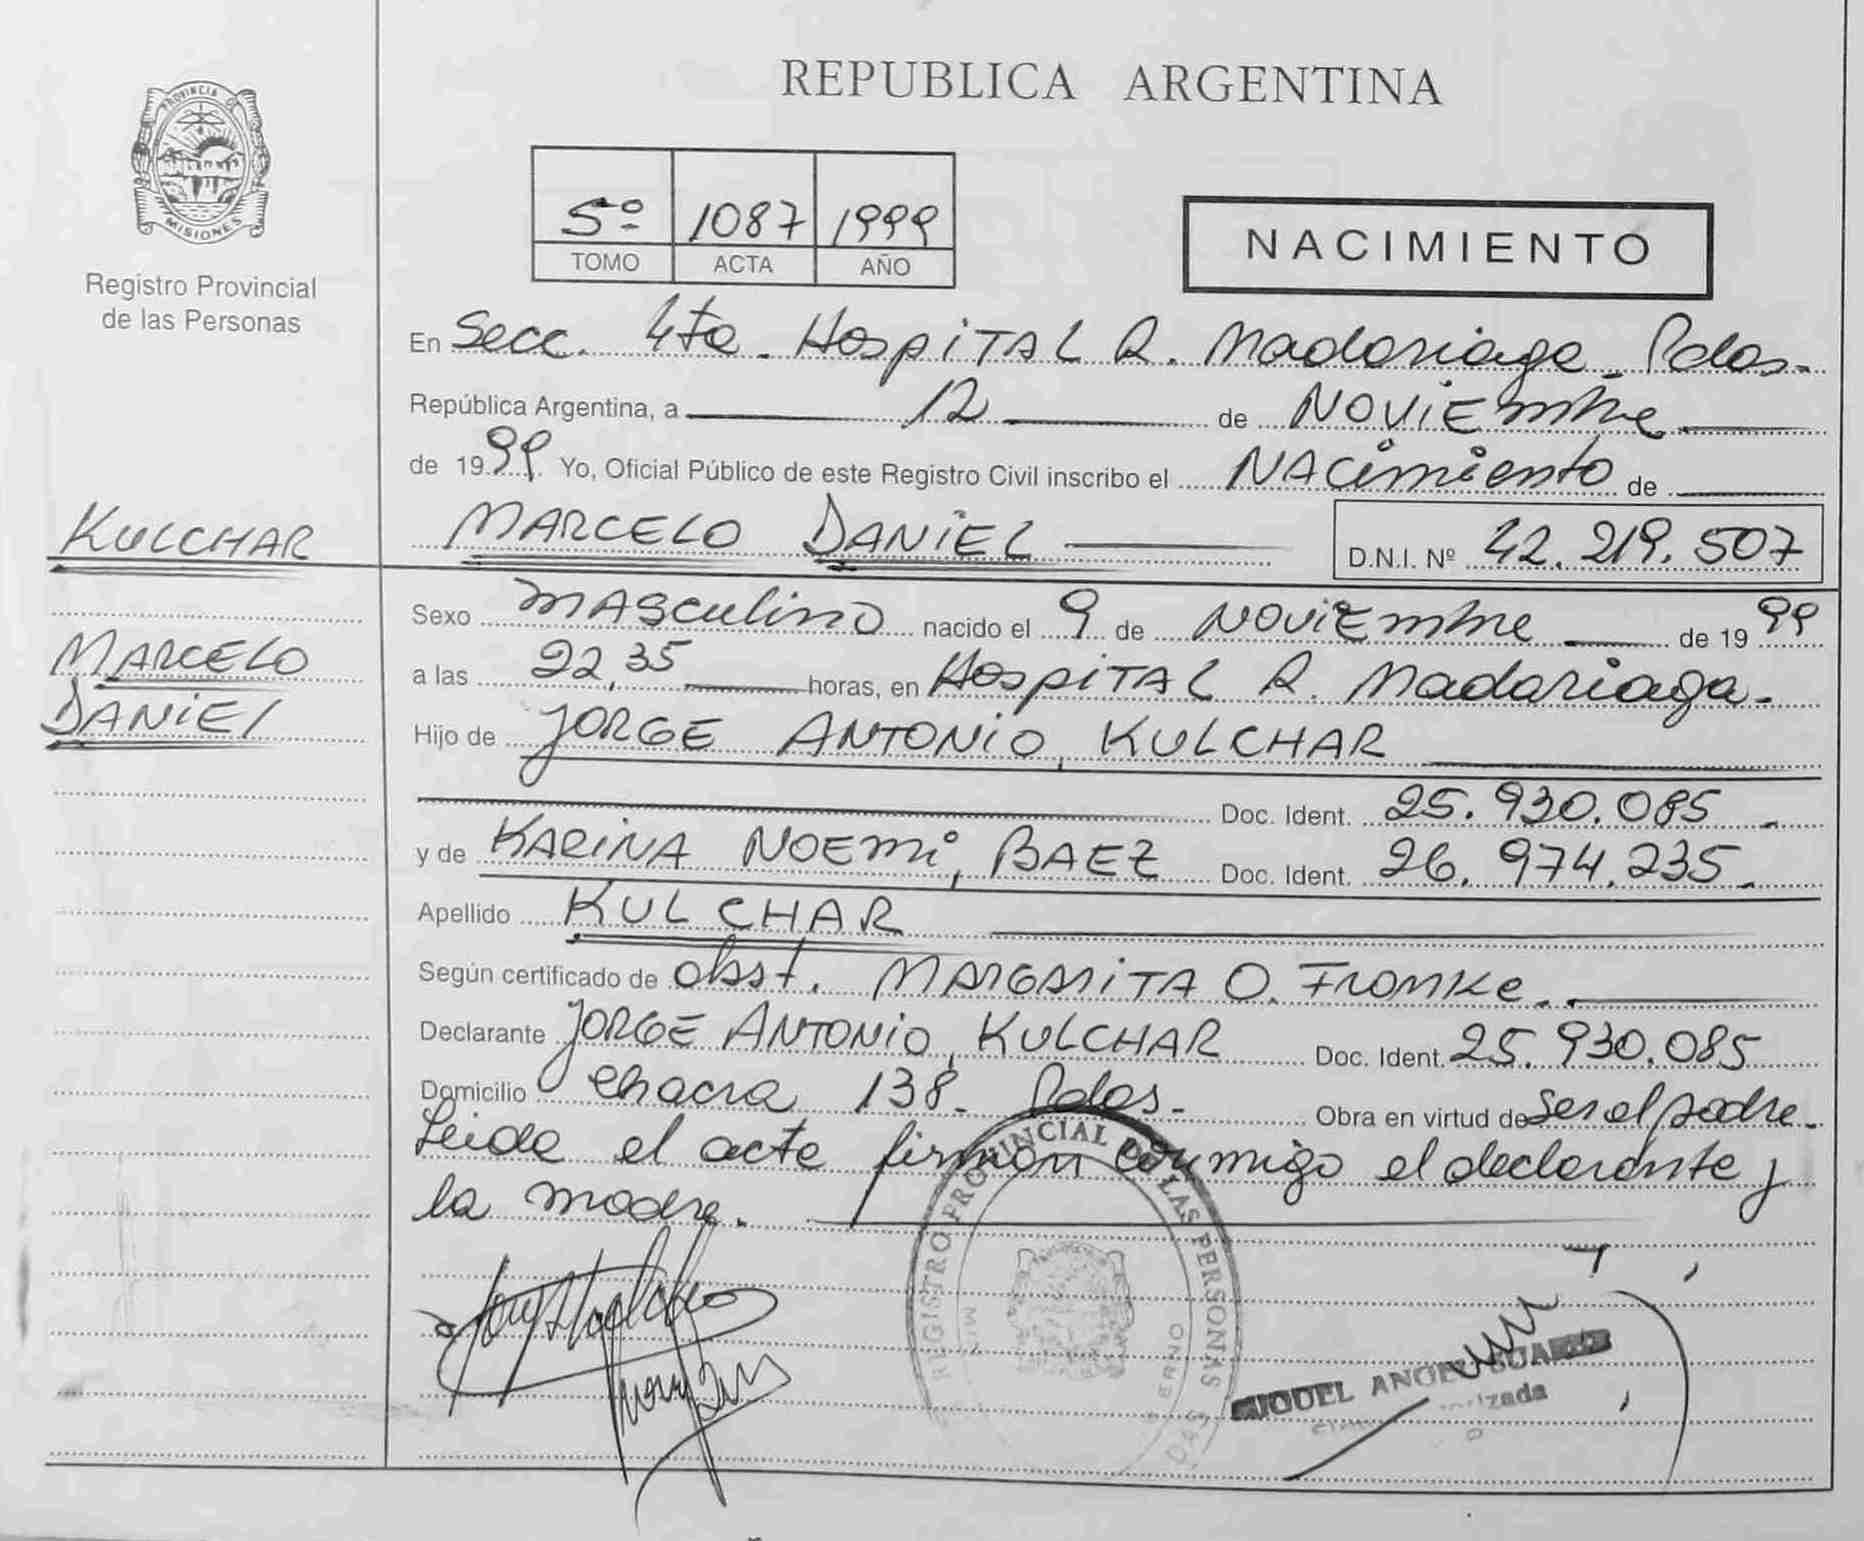 REPUBLICA ARGENTINA
PROVINCIA DE
MISIONES
Registro Provincial
de las Personas
5º 1087 1999
TOMO ACTA AÑO
NACIMIENTO
En Secc. 4ta. Hospital R. Madariaga. Pdas.
República Argentina, a 12 de Noviembre
de 1999. Yo, Oficial Público de este Registro Civil inscribo el Nacimiento de
KULCHAR
MARCELO DANIEL D.N.I. Nº 42.219.507
MARCELO
DANIEL
Sexo Masculino nacido el 9 de Noviembre de 1999
a las 22,35 horas, en Hospital R. Madariaga.
Hijo de JORGE ANTONIO, KULCHAR
Doc. Ident. 25.930.085.
y de KARINA NOEMI, BAEZ Doc. Ident. 26.974.235.
Apellido KULCHAR
Según certificado de obst. MARGARITA O. Fromke.
Declarante JORGE ANTONIO, KULCHAR Doc. Ident. 25.930.085
Domicilio Chacra 138. Pdas. Obra en virtud de ser el padre.
Leida el acta firman conmigo el declarante y
la madre.
REGISTRO PROVINCIAL DE LAS PERSONAS
MIGUEL ANGEL